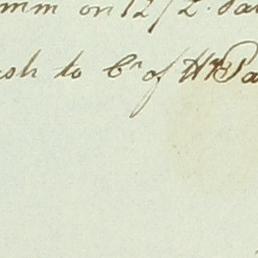 omm on 12/2
sh to Cr of Wm Pa